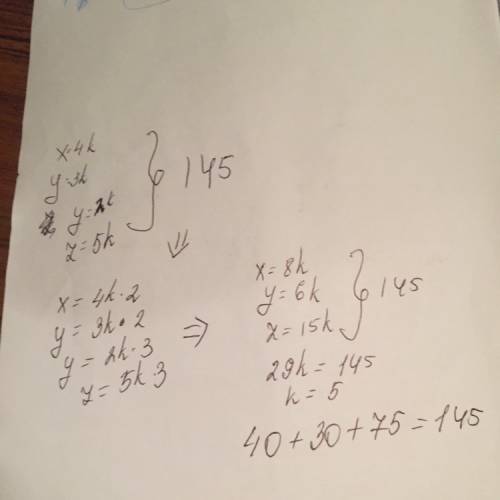 x=4k
y=3k
y=2k
z=5k
145
⇓
x = 4k·2
y = 3k·2
y = 2k·3
z = 5k·3
⇒
x = 8k
y = 6k
z = 15k
145
29k = 145
k = 5
40+30+75=145